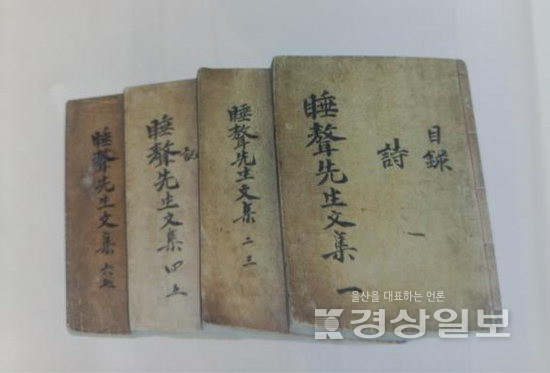 目錄
詩 一
睡聱先生文集 一
睡聱先生文集 二三
記
睡聱先生文集 四五
睡聱先生文集 六七
울산을 대표하는 언론
경상일보